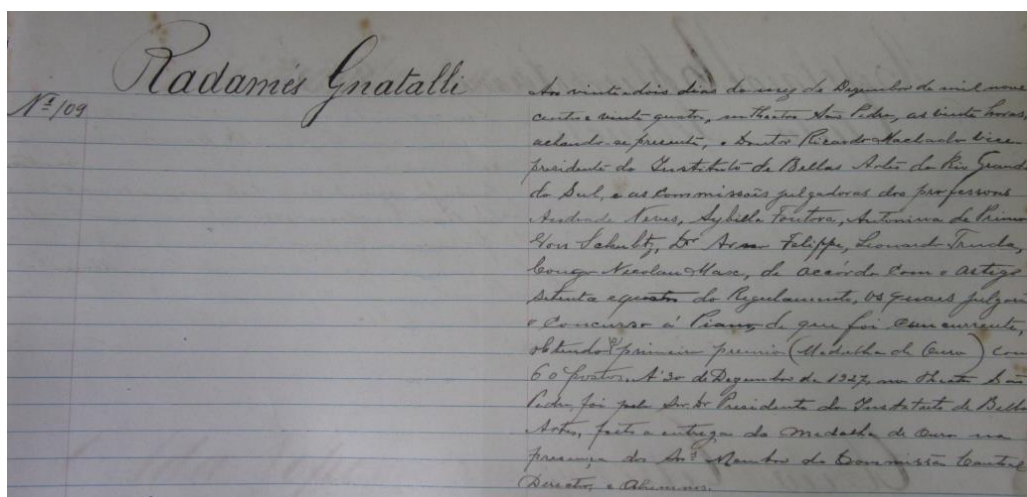 Radamés Gnatalli
Nº 109
Aos vinte e dois dias do mez de Dezembro de mil nove
centos e vinte quatro, no Theatro São Pedro, as vinte horas,
achando-se presente, o Doutor Ricardo Machado vice-
presidente do Instituto de Bellas Artes do Rio Grande
do Sul, e as Commissões julgadoras dos professores
Andrade Neves, Sybilla Fontoura, Antonina de Primio
Von Schultz, Dr Felippe, Leonardo Truda,
Conego Nicolau Marx, de accôrdo com o artigo
setenta e quatro do Regulamento, os quaes julgou
o Concurso á Piano, de que foi concurrente,
obtendo o primeiro premio (Medalha de Ouro) com
60 pontos. A' 30 de Dezembro de 1927, no Theatro São
Pedro, foi pelo Snr. Dr Presidente do Instituto de Bellas
Artes, feito a entrega da medalha de Ouro na
presença dos Snrs Membros da Commissão Central
Director, e Alumnos.